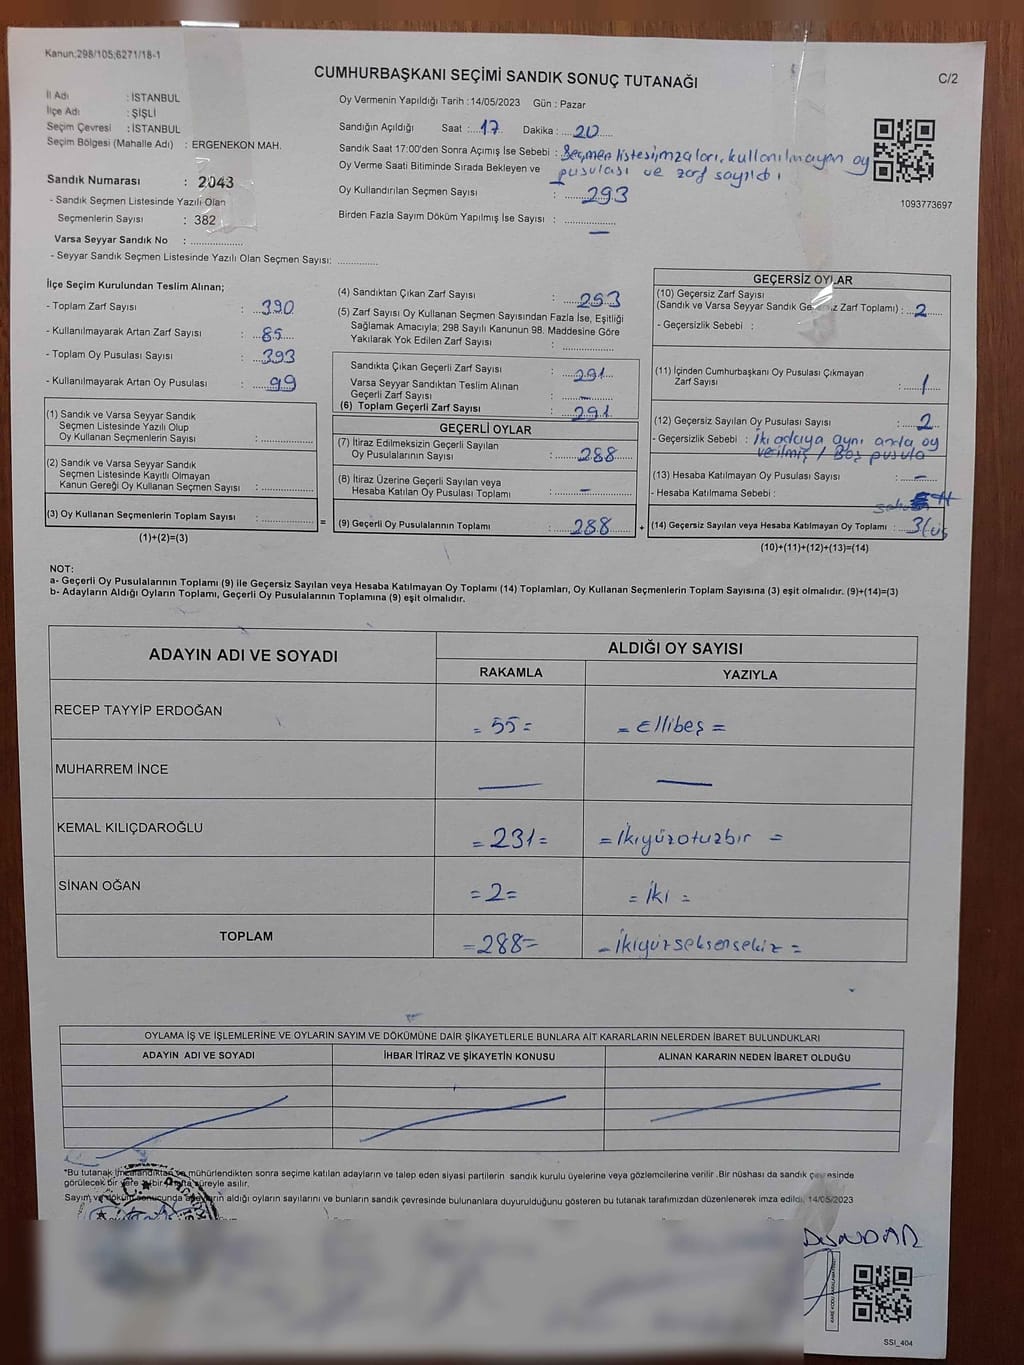 Kanun;298/105;6271/18-1
CUMHURBAŞKANI SEÇİMİ SANDIK SONUÇ TUTANAĞI
C/2
İl Adı : İSTANBUL
İlçe Adı : ŞİŞLİ
Seçim Çevresi : İSTANBUL
Seçim Bölgesi (Mahalle Adı) : ERGENEKON MAH.
Sandık Numarası : 2043
- Sandık Seçmen Listesinde Yazılı Olan
Seçmenlerin Sayısı : 382
Varsa Seyyar Sandık No : ................
- Seyyar Sandık Seçmen Listesinde Yazılı Olan Seçmen Sayısı: .............
Oy Vermenin Yapıldığı Tarih : 14/05/2023 Gün : Pazar
Sandığın Açıldığı Saat : 17 Dakika : 20
Sandık Saat 17:00'den Sonra Açımış İse Sebebi : Seçmen listesi imzaları, kullanılmayan oy
Oy Verme Saati Bitiminde Sırada Bekleyen ve pusulası ve zarf sayıldı
Oy Kullandırılan Seçmen Sayısı : 293
Birden Fazla Sayım Döküm Yapılmış İse Sayısı : —
1093773697
İlçe Seçim Kurulundan Teslim Alınan;
- Toplam Zarf Sayısı : 390
- Kullanılmayarak Artan Zarf Sayısı : 85
- Toplam Oy Pusulası Sayısı : 393
- Kullanılmayarak Artan Oy Pusulası : 99
(1) Sandık ve Varsa Seyyar Sandık
Seçmen Listesinde Yazılı Olup
Oy Kullanan Seçmenlerin Sayısı :
(2) Sandık ve Varsa Seyyar Sandık
Seçmen Listesinde Kayıtlı Olmayan
Kanun Gereği Oy Kullanan Seçmen Sayısı :
(3) Oy Kullanan Seçmenlerin Toplam Sayısı : =
(1)+(2)=(3)
(4) Sandıktan Çıkan Zarf Sayısı : 293
(5) Zarf Sayısı Oy Kullanan Seçmen Sayısından Fazla İse, Eşitliği
Sağlamak Amacıyla; 298 Sayılı Kanunun 98. Maddesine Göre
Yakılarak Yok Edilen Zarf Sayısı :
Sandıkta Çıkan Geçerli Zarf Sayısı : 291
Varsa Seyyar Sandıktan Teslim Alınan
Geçerli Zarf Sayısı : —
(6) Toplam Geçerli Zarf Sayısı : 291
GEÇERLİ OYLAR
(7) İtiraz Edilmeksizin Geçerli Sayılan
Oy Pusulalarının Sayısı : 288
(8) İtiraz Üzerine Geçerli Sayılan veya
Hesaba Katılan Oy Pusulası Toplamı : —
(9) Geçerli Oy Pusulalarının Toplamı : 288 +
GEÇERSİZ OYLAR
(10) Geçersiz Zarf Sayısı
(Sandık ve Varsa Seyyar Sandık Geçersiz Zarf Toplamı) : 2
- Geçersizlik Sebebi :
(11) İçinden Cumhurbaşkanı Oy Pusulası Çıkmayan
Zarf Sayısı : 1
(12) Geçersiz Sayılan Oy Pusulası Sayısı : 2
- Geçersizlik Sebebi : İki adaya aynı anda oy
verilmiş / Boş pusula
(13) Hesaba Katılmayan Oy Pusulası Sayısı : —
- Hesaba Katılmama Sebebi :
(14) Geçersiz Sayılan veya Hesaba Katılmayan Oy Toplamı : 3(üç
(10)+(11)+(12)+(13)=(14)
NOT:
a- Geçerli Oy Pusulalarının Toplamı (9) ile Geçersiz Sayılan veya Hesaba Katılmayan Oy Toplamı (14) Toplamları, Oy Kullanan Seçmenlerin Toplam Sayısına (3) eşit olmalıdır. (9)+(14)=(3)
b- Adayların Aldığı Oyların Toplamı, Geçerli Oy Pusulalarının Toplamına (9) eşit olmalıdır.
ADAYIN ADI VE SOYADI ALDIĞI OY SAYISI
RAKAMLA YAZIYLA
RECEP TAYYİP ERDOĞAN = 55 = = Ellibeş =
MUHARREM İNCE — —
KEMAL KILIÇDAROĞLU = 231 = = İkiyüzotuzbir =
SİNAN OĞAN = 2 = = İki =
TOPLAM = 288 = = İkiyüzseksensekiz =
OYLAMA İŞ VE İŞLEMLERİNE VE OYLARIN SAYIM VE DÖKÜMÜNE DAİR ŞİKAYETLERLE BUNLARA AİT KARARLARIN NELERDEN İBARET BULUNDUKLARI
ADAYIN ADI VE SOYADI İHBAR İTİRAZ VE ŞİKAYETİN KONUSU ALINAN KARARIN NEDEN İBARET OLDUĞU
*Bu tutanak imzalandıktan ve mühürlendikten sonra seçime katılan adayların ve talep eden siyasi partilerin sandık kurulu üyelerine veya gözlemcilerine verilir .Bir nüshası da sandık çevresinde
görülecek bir yere bir hafta süreyle asılır.
Sayım ve döküm sonucunda adayların aldığı oyların sayılarını ve bunların sandık çevresinde bulunanlara duyurulduğunu gösteren bu tutanak tarafımızdan düzenlenerek imza edildi. 14/05/2023
DÜNDAR
SSI_404